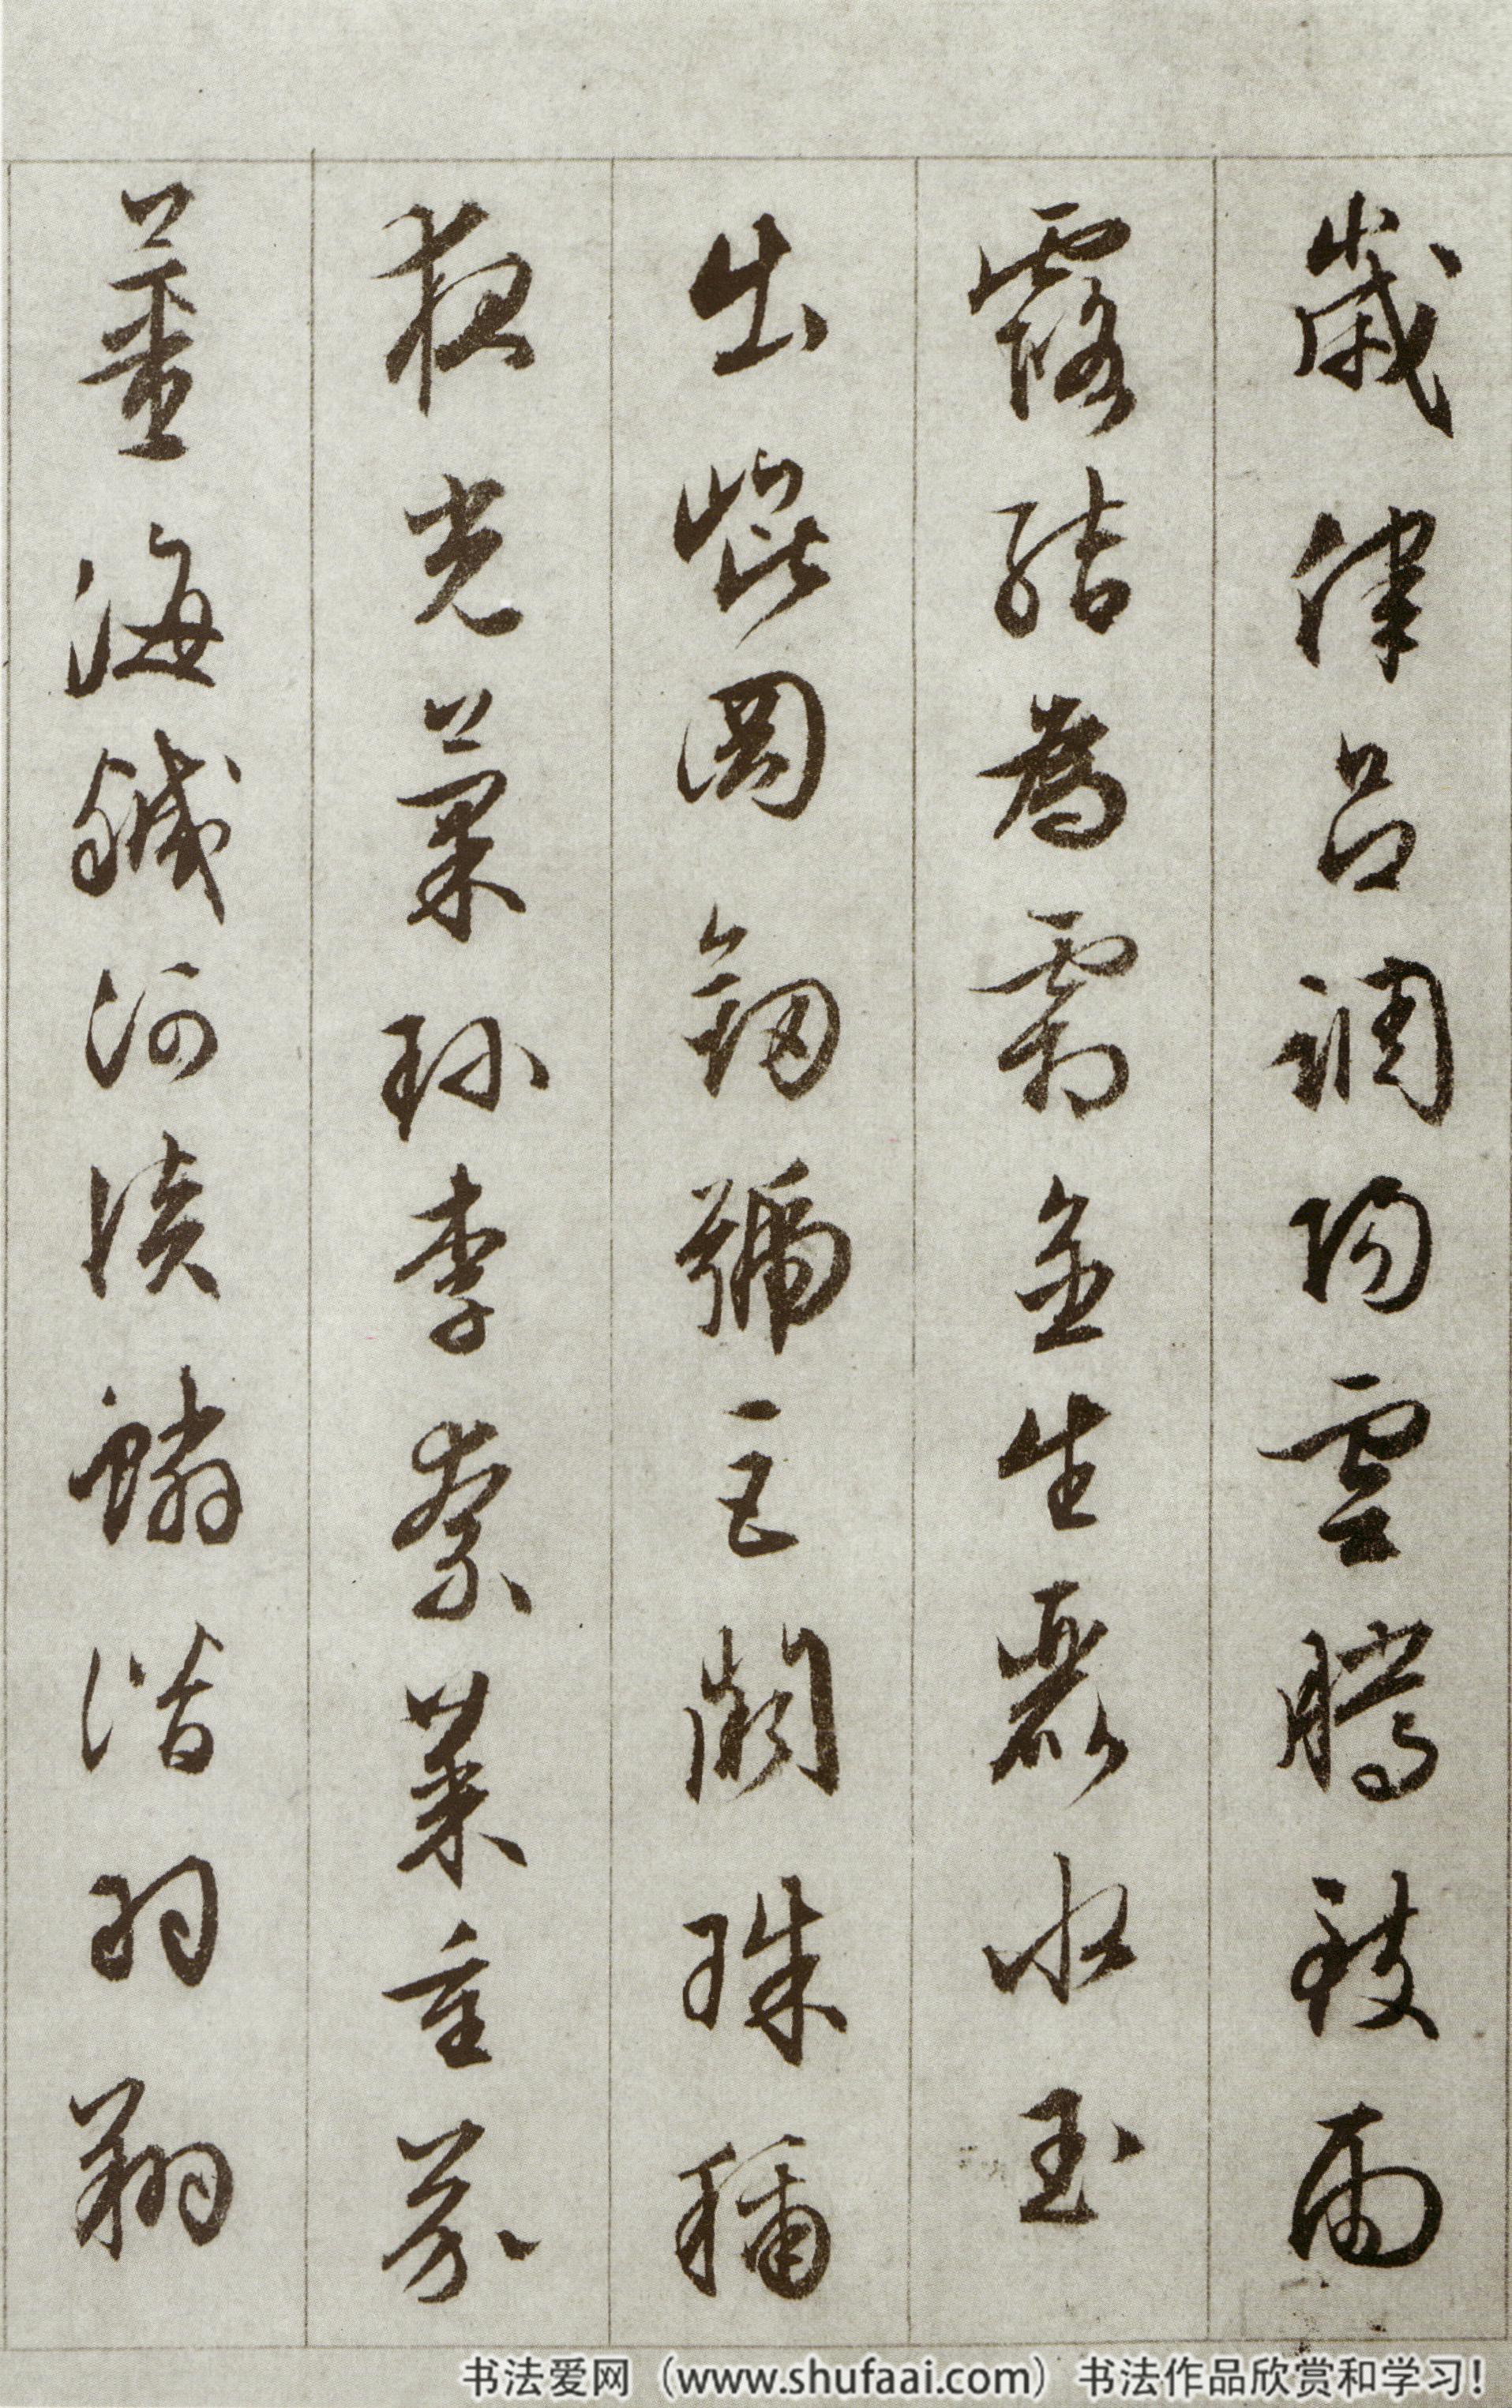 歲律呂調陽雲騰致雨
露結為霜金生麗水玉
出崐岡劒號巨闕珠稱
夜光菓珎李柰菜重芥
薑海鹹河淡鱗潛羽翔
书法爱网（www.shufaai.com）书法作品欣赏和学习！